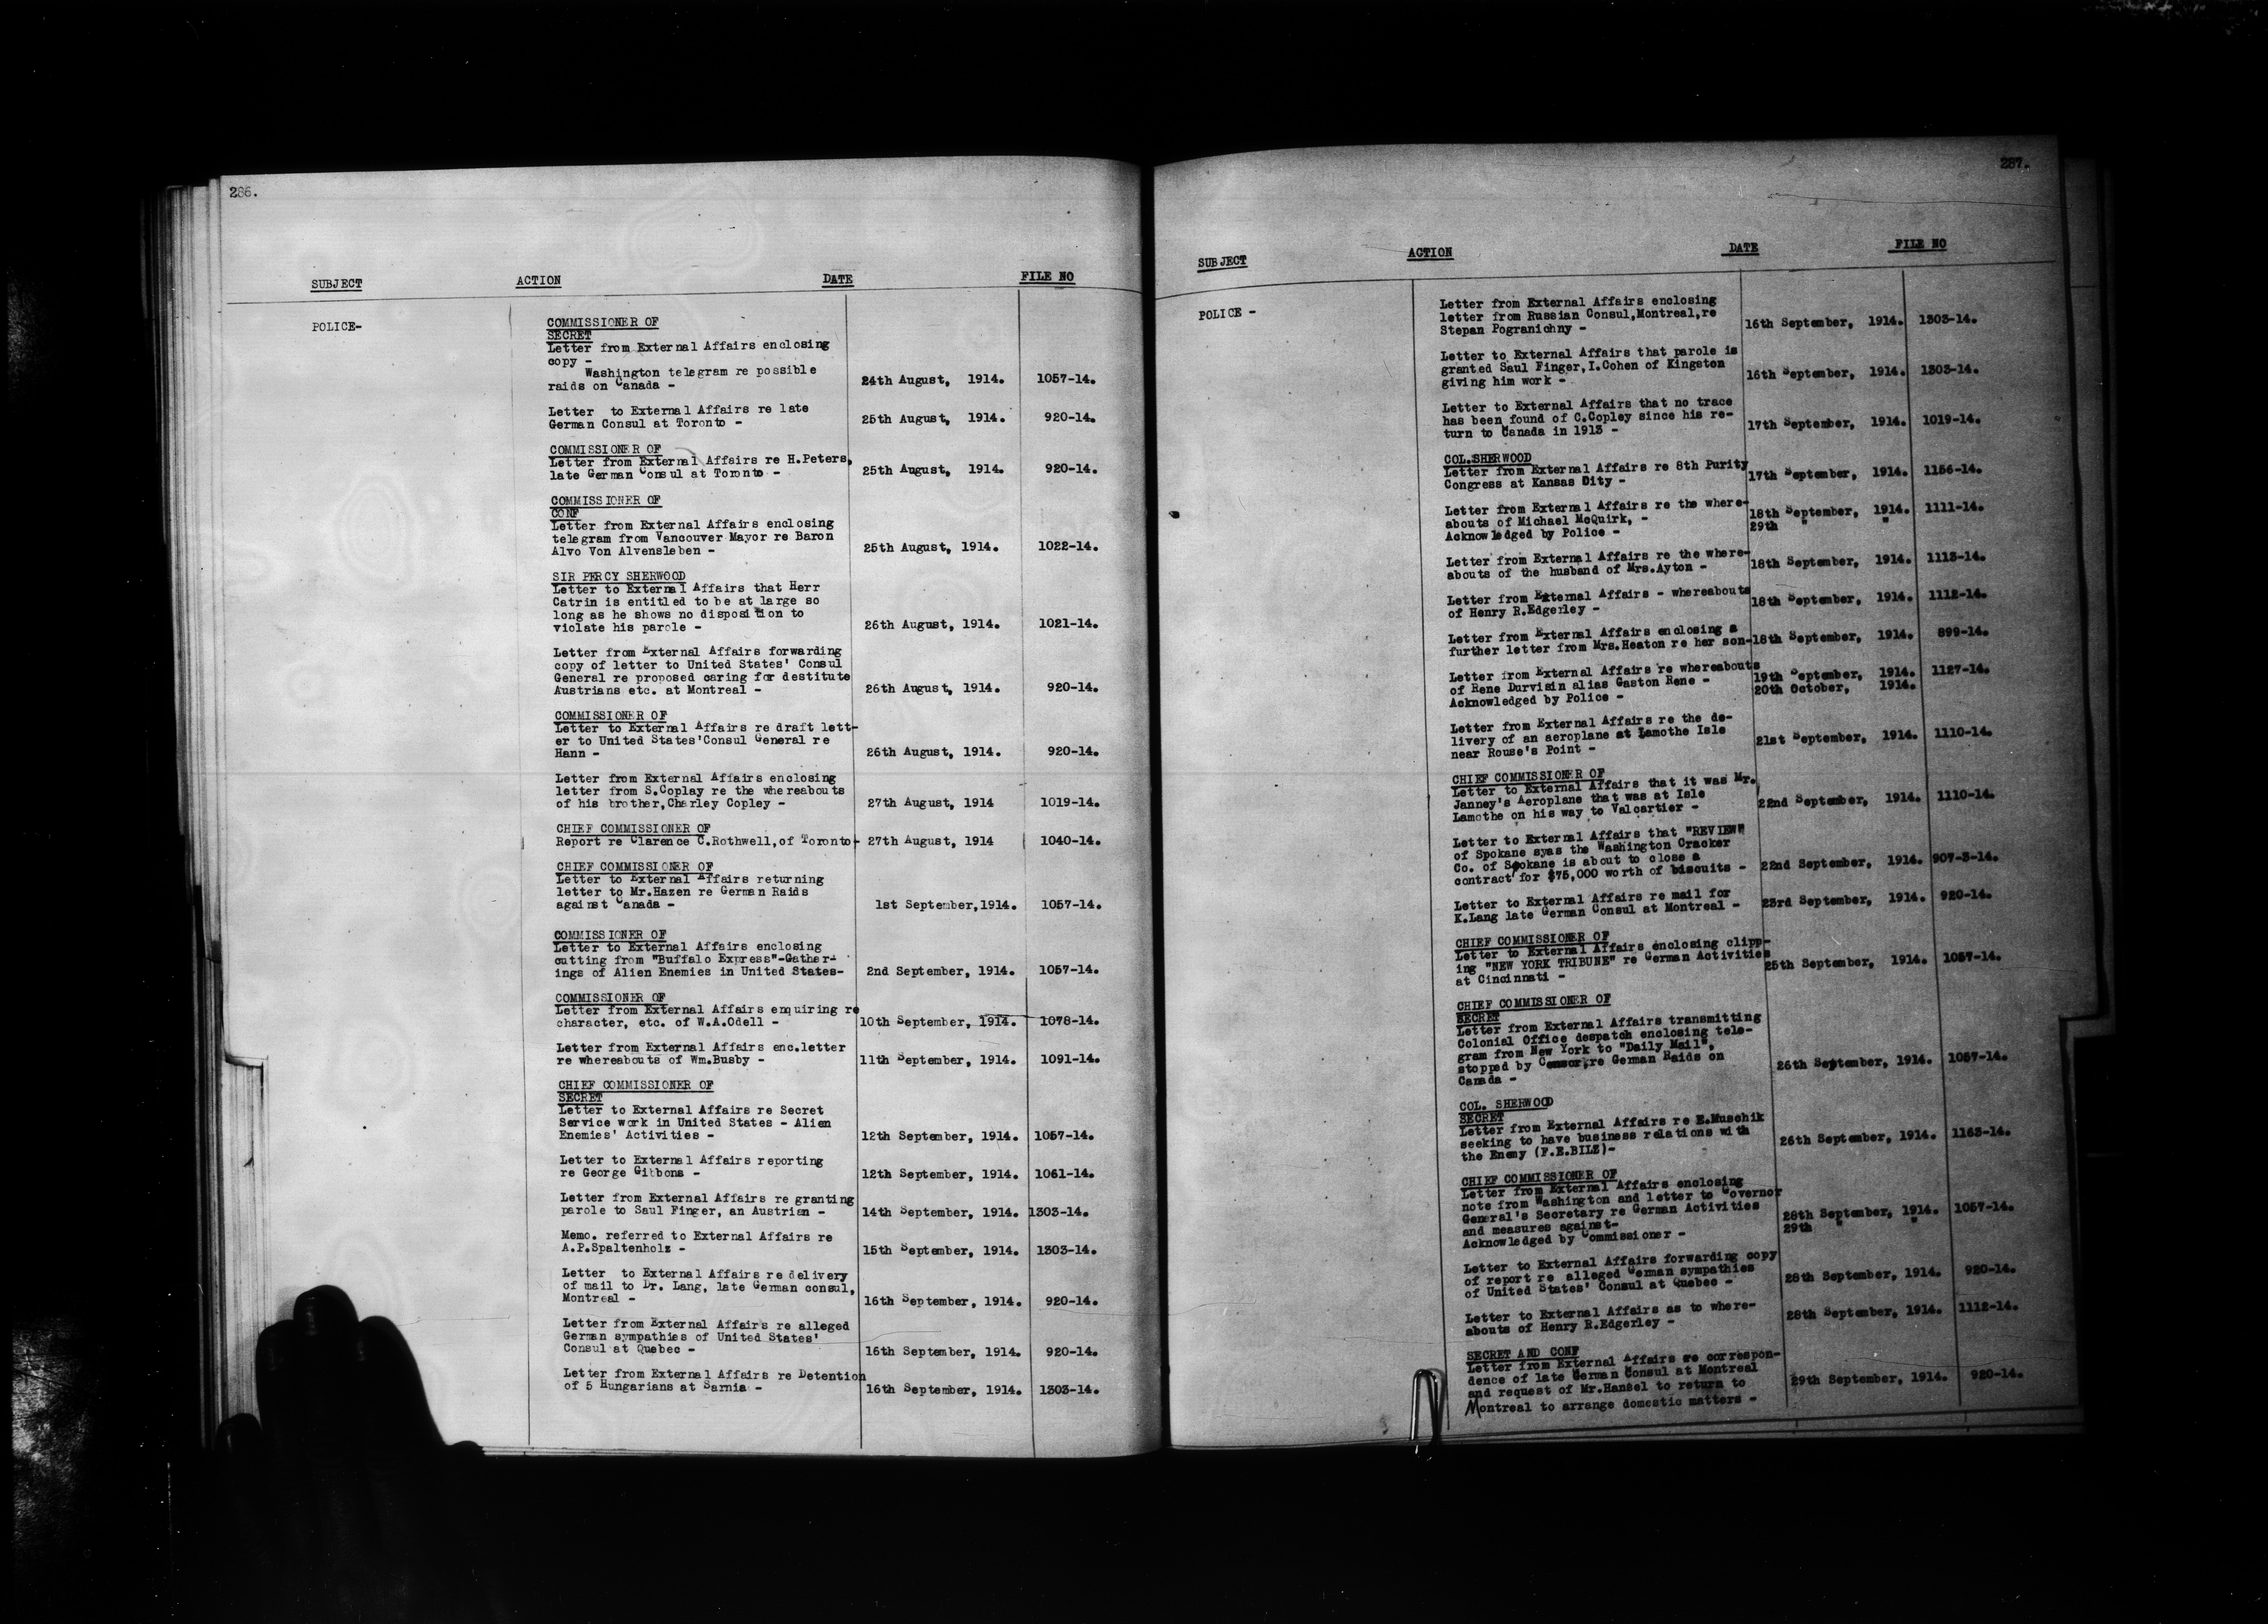 286.
SUBJECT ACTION DATE FILE NO
POLICE-
COMMISSIONER OF
SECRET
Letter from External Affairs enclosing
copy -
Washington telegram re possible
raids on Canada - 24th August, 1914. 1057-14.
Letter to External Affairs re late
German Consul at Toronto - 25th August, 1914. 920-14.
COMMISSIONER OF
Letter from External Affairs re H.Peters,
late German Consul at Toronto - 25th August, 1914. 920-14.
COMMISSIONER OF
CONF
Letter from External Affairs enclosing
telegram from Vancouver Mayor re Baron
Alvo Von Alvensleben - 25th August, 1914. 1022-14.
SIR PERCY SHERWOOD
Letter to External Affairs that Herr
Catrin is entitled to be at large so
long as he shows no disposition to
violate his parole - 26th August, 1914. 1021-14.
Letter from External Affairs forwarding
copy of letter to United States' Consul
General re proposed caring for destitute
Austrians etc. at Montreal - 26th August, 1914. 920-14.
COMMISSIONER OF
Letter to External Affairs re draft lett-
er to United States'Consul General re
Hann - 26th August, 1914. 920-14.
Letter from External Affairs enclosing
letter from S.Coplay re the whereabouts
of his brother,Charley Copley - 27th August, 1914 1019-14.
CHIEF COMMISSIONER OF
Report re Clarence C.Rothwell,of Toronto- 27th August, 1914 1040-14.
CHIEF COMMISSIONER OF
Letter to External Affairs returning
letter to Mr.Hazen re German Raids
against Canada - 1st September,1914. 1057-14.
COMMISSIONER OF
Letter to External Affairs enclosing
cutting from "Buffalo Express"-Gather-
ings of Alien Enemies in United States- 2nd September, 1914. 1057-14.
COMMISSIONER OF
Letter from External Affairs enquiring re
character, etc. of W.A.Odell - 10th September, 1914. 1078-14.
Letter from External Affairs enc.letter
re whereabouts of Wm.Busby - 11th September, 1914. 1091-14.
CHIEF COMMISSIONER OF
SECRET
Letter to External Affairs re Secret
Service work in United States - Alien
Enemies' Activities - 12th September, 1914. 1057-14.
Letter to External Affairs reporting
re George Gibbons - 12th September, 1914. 1061-14.
Letter from External Affairs re granting
parole to Saul Finger, an Austrian - 14th September, 1914. 1303-14.
Memo. referred to External Affairs re
A.P.Spaltenholz - 15th September, 1914. 1303-14.
Letter to External Affairs re delivery
of mail to Dr. Lang, late German consul,
Montreal - 16th September, 1914. 920-14.
Letter from External Affairs re alleged
German sympathies of United States'
Consul at Quebec - 16th September, 1914. 920-14.
Letter from External Affairs re Detention
of 5 Hungarians at Sarnia - 16th September, 1914. 1303-14.
287.
SUBJECT ACTION DATE FILE NO
POLICE -
Letter from External Affairs enclosing
letter from Russian Consul,Montreal,re
Stepan Pogranichny - 16th September, 1914. 1303-14.
Letter to External Affairs that parole is
granted Saul Finger,I.Cohen of Kingston
giving him work - 16th September, 1914. 1303-14.
Letter to External Affairs that no trace
has been found of C.Copley since his re-
turn to Canada in 1913 - 17th September, 1914. 1019-14.
COL.SHERWOOD
Letter from External Affairs re 8th Purity
Congress at Kansas City - 17th September, 1914. 1156-14.
Letter from External Affairs re the where-
abouts of Michael McQuirk, - 18th September, 1914. 1111-14.
Acknowledged by Police - 29th " "
Letter from External Affairs re the where-
abouts of the husband of Mrs.Ayton - 18th September, 1914. 1113-14.
Letter from External Affairs - whereabouts
of Henry R.Edgerley - 18th September, 1914. 1112-14.
Letter from External Affairs enclosing a
further letter from Mrs.Heaton re her son- 18th September, 1914. 899-14.
Letter from External Affairs re whereabouts
of Rene Durvisin alias Gaston Rene - 19th September, 1914. 1127-14.
Acknowledged by Police - 20th October, 1914.
Letter from External Affairs re the de-
livery of an aeroplane at Lamothe Isle
near Rouse's Point - 21st September, 1914. 1110-14.
CHIEF COMMISSIONER OF
Letter to External Affairs that it was Mr.
Janney's Aeroplane that was at Isle
Lamothe on his way to Valcartier - 22nd September, 1914. 1110-14.
Letter to External Affairs that "REVIEW"
of Spokane syas the Washington Cracker
Co. of Spokane is about to close a
contract for $75,000 worth of biscuits - 22nd September, 1914. 907-3-14.
Letter to External Affairs re mail for
K.Lang late German Consul at Montreal - 23rd September, 1914. 920-14.
CHIEF COMMISSIONER OF
Letter to External Affairs enclosing clipp-
ing "NEW YORK TRIBUNE" re German Activities
at Cincinnati - 25th September, 1914. 1057-14.
CHIEF COMMISSIONER OF
SECRET
Letter from External Affairs transmitting
Colonial Office despatch enclosing tele-
gram from New York to "Daily Mail",
stopped by Censor,re German Raids on
Canada - 26th September, 1914. 1057-14.
COL. SHERWOOD
SECRET
Letter from External Affairs re E.Muschik
seeking to have business relations with
the Enemy (F.E.BILZ)- 26th September, 1914. 1163-14.
CHIEF COMMISSIONER OF
Letter from External Affairs enclosing
note from Washington and letter to Governor
General's Secretary re German Activities
and measures against- 28th September, 1914. 1057-14.
Acknowledged by Commissioner - 29th " "
Letter to External Affairs forwarding copy
of report re alleged German sympathies
of United States' Consul at Quebec - 28th September, 1914. 920-14.
Letter to External Affairs as to where-
abouts of Henry R.Edgerley - 28th September, 1914. 1112-14.
SECRET AND CONF
Letter from External Affairs re correspon-
dence of late German Consul at Montreal
and request of Mr.Hansel to return to
Montreal to arrange domestic matters - 29th September, 1914. 920-14.